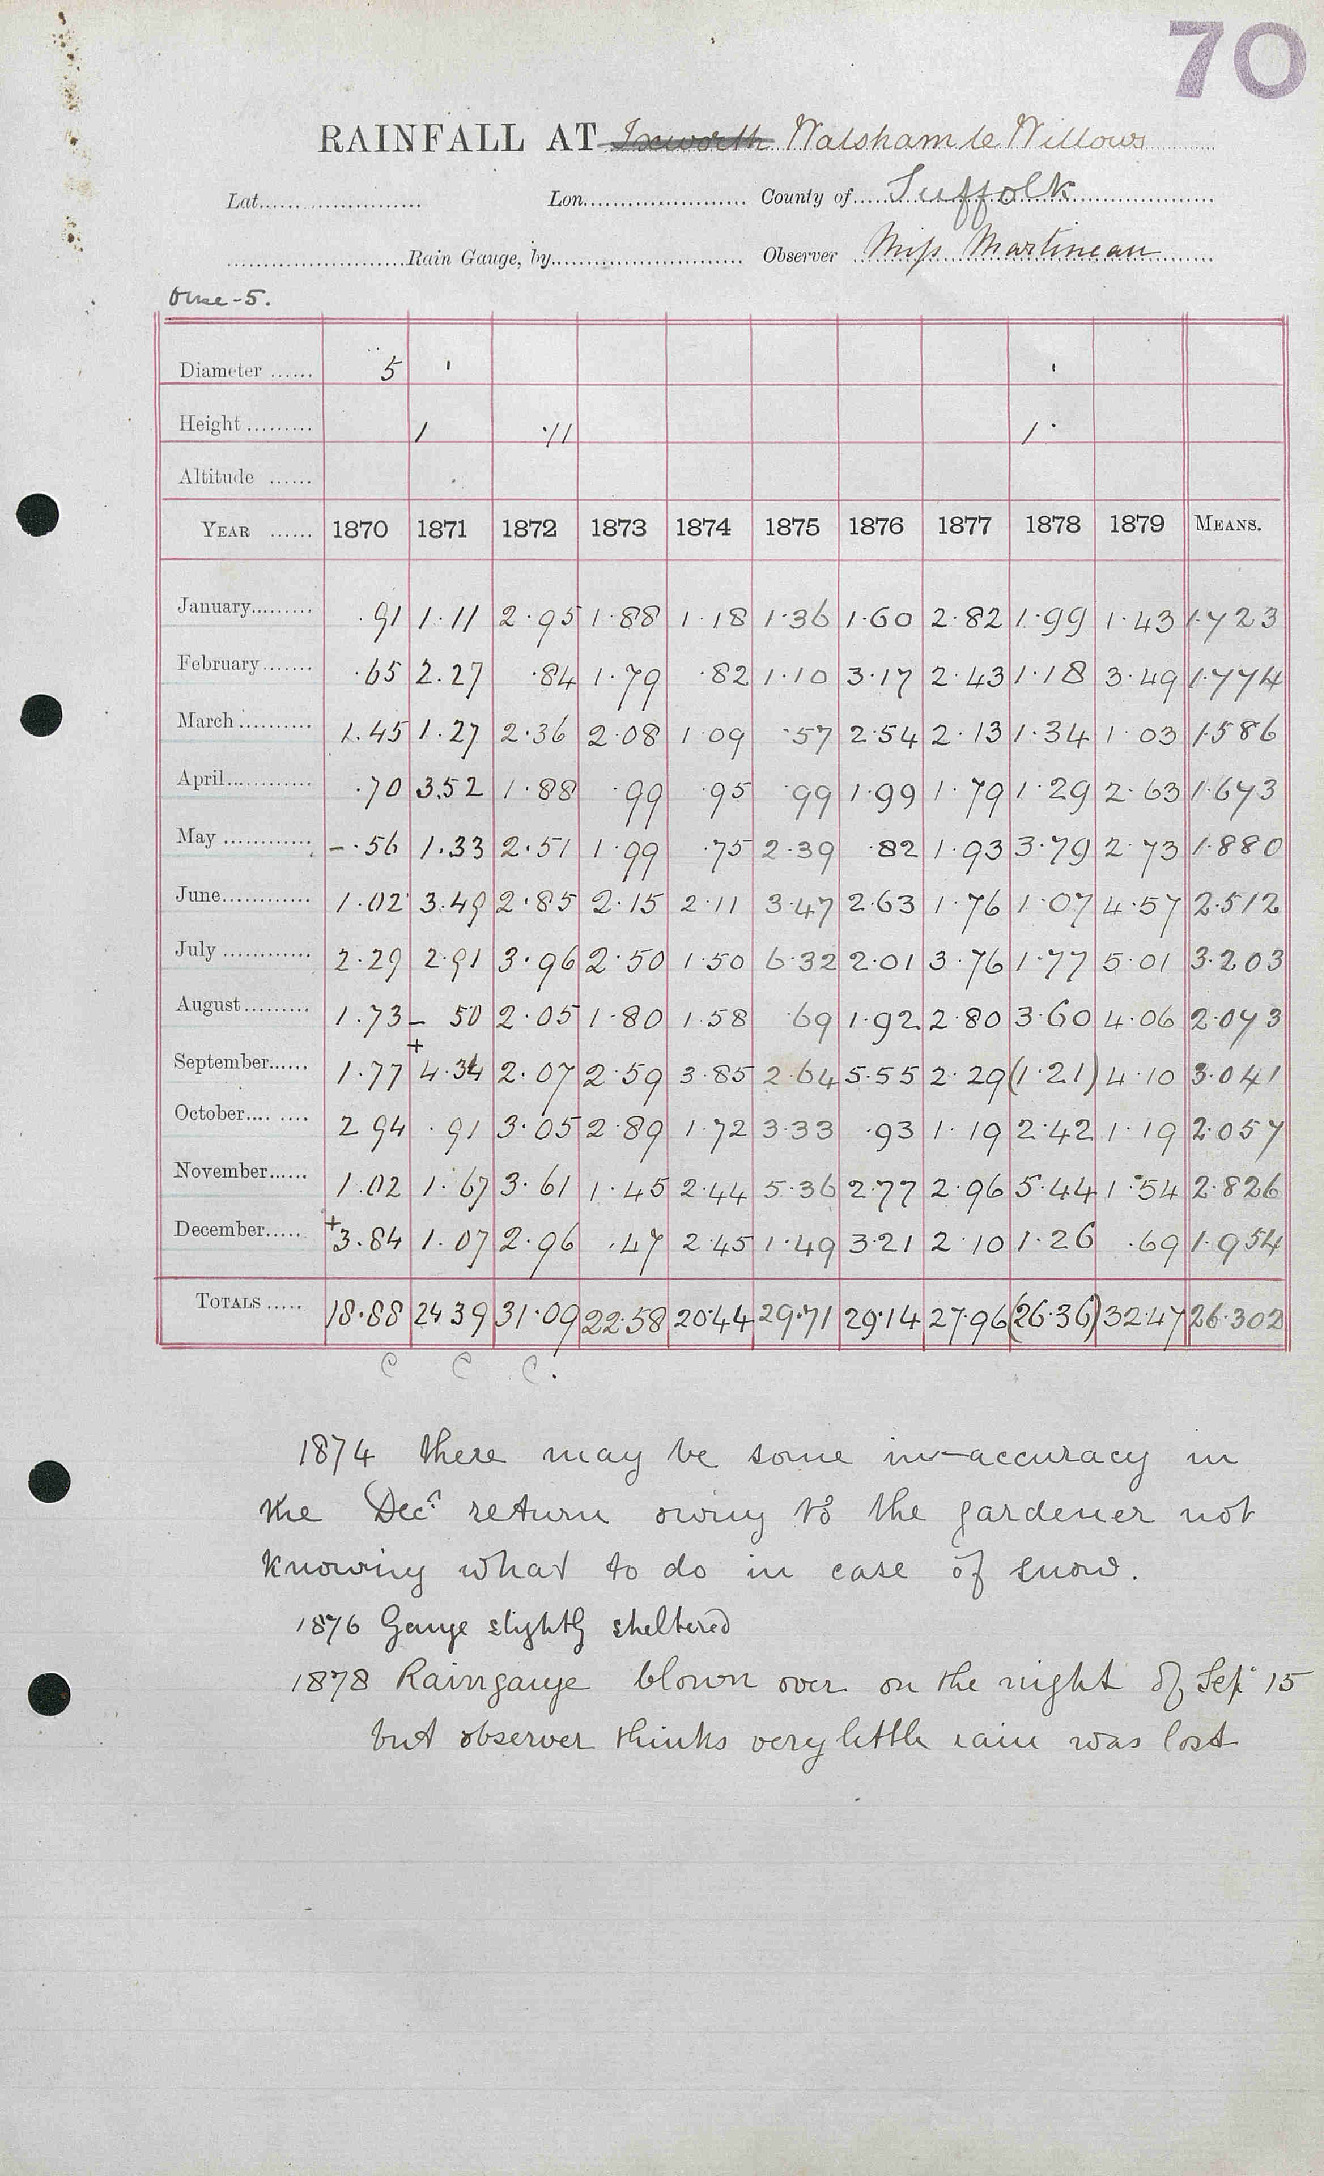 70
RAINFALL AT Ixworth Walsham le Willows
Lat. Lon. County of Suffolk
Rain Gauge, by Observer Miss Martineau
Ouse - 5.
Diameter 5
Height 1 11 1
Altitude
YEAR 1870 1871 1872 1873 1874 1875 1876 1877 1878 1879 MEANS.
January .91 1.11 2.95 1.88 1.18 1.36 1.60 2.82 1.99 1.43 1.723
February .65 2.27 .84 1.79 .82 1.10 3.17 2.43 1.18 3.49 1.774
March 1.45 1.27 2.36 2.08 1.09 .57 2.54 2.13 1.34 1.03 1.586
April .70 3.52 1.88 .99 .95 .99 1.99 1.79 1.29 2.63 1.673
May - .56 1.33 2.51 1.99 .75 2.39 .82 1.93 3.79 2.73 1.880
June 1.02 3.49 2.85 2.15 2.11 3.47 2.63 1.76 1.07 4.57 2.512
July 2.29 2.91 3.96 2.50 1.50 6.32 2.01 3.76 1.77 5.01 3.203
August 1.73 - 50 2.05 1.80 1.58 .69 1.92 2.80 3.60 4.06 2.073
September 1.77 + 4.34 2.07 2.59 3.85 2.64 5.55 2.29 (1.21) 4.10 3.041
October 2 94 .91 3.05 2.89 1.72 3.33 .93 1.19 2.42 1.19 2.057
November 1.02 1.67 3.61 1.45 2.44 5.36 2.77 2.96 5.44 1.54 2.826
December + 3.84 1.07 2.96 .47 2.45 1.49 3.21 2.10 1.26 .69 1.954
TOTALS 18.88 24 39 31.09 22.58 20.44 29.71 29.14 27.96 (26.36) 32.47 26.302
C C C.
1874 there may be some in-accuracy in
the Decr return owing to the gardener not
knowing what to do in case of snow.
1876 Gauge slightly sheltered
1878 Raingauge blown over on the night of Sep 15
but observer thinks very little rain was lost